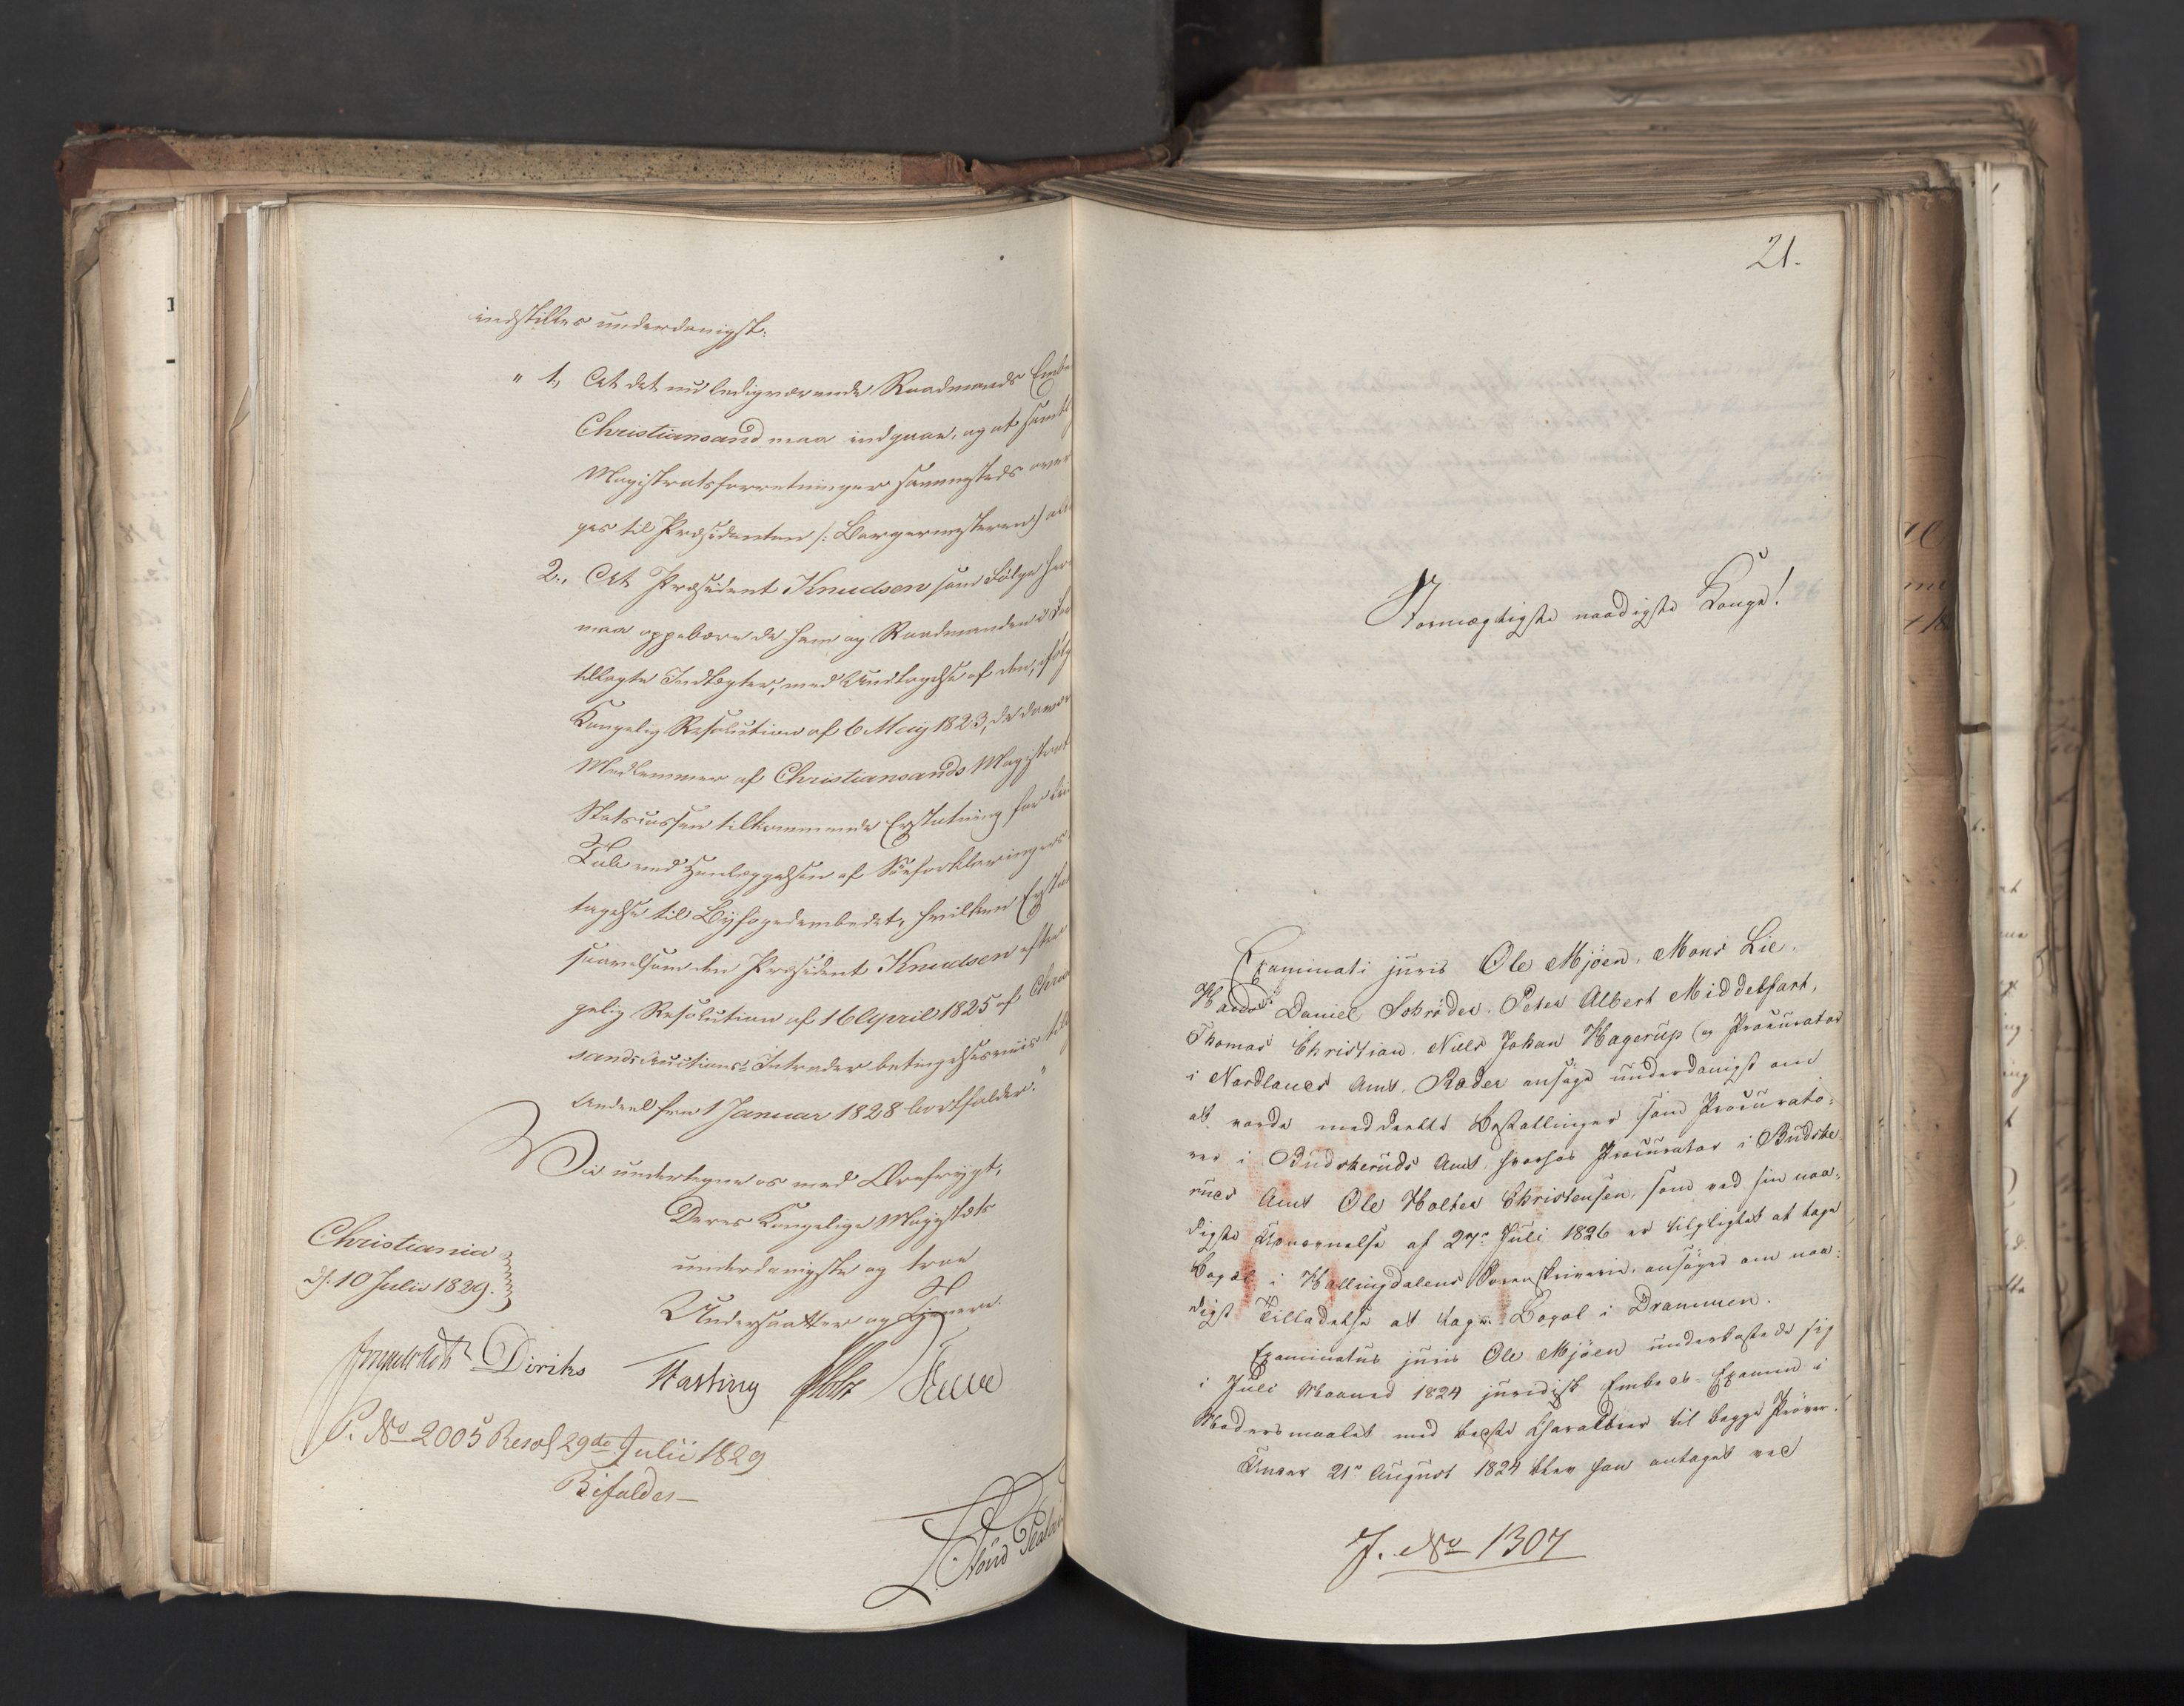 indstilles underdanigst:
" 1, At det nu ledigværende Raadmands Embe
Christiansand maa indgaae, og at samt
Magistratsforretninger sammesteds over
ges til Præsidenten /: Borgermesteren :/
2., At Præsident Knudsen som Følge her
maa oppebære de ham og Raadmanden i
tillagte Indtægter, med Undtagelse af den, ifölg
Kongelig Resolution af 6 May 1823, de davær
Medlemmer af Christiansands Magistrat
Statscassen tilkommende Erstatning for
Tab ved Henlæggelsen af Søeforklaringers
tagelse til Byfogedembedet, hvilken Erstat
saavelsom den Præsident Knudsen efter
gelig Resolution af 16 April 1825 af Chri
sands Auctions-Intrader betingelsesviis till
Andeel fra 1 Januar 1828 bortfalder."
Vi undertegne os med Ærefrygt,
Deres Kongelige Majestæts
underdanigste og troe
Undersaatter og Tjenere.
Christiania
d. 10 Julii 1829.
Diriks Hasting
P. No 2005 Resol 29de Julii 1829
Bifaldes
21.
Stormægtigste naadigste Konge!
Examinati juris Ole Mjöen, Mons Lie,
Hans Daniel Schröder, Peter Albert Middelfart,
Thomas Christian Niels Johan Hagerup og Procurator
i Nordlands Amt Ræder ansöge underdanigst om
at vorde meddeelte Bestallinger som Procurato-
rer i Budskeruds Amt, hvorhos Procurator i Budske-
ruds Amt Ole Holter Christensen, som ved sin naa-
digste Udnævnelse af 27de Juli 1826 er tilpligtet at tage
Bopæl i Hallingdalens Sorenskriverie, ansöger om naa-
digst Tilladelse at tage Bopæl i Drammen.
Examinatus juris Ole Mjöen underkastede sig
i Juli Maaned 1824 juridisk Embeds-Examen i
Modersmaalet med bedste Charakteer til begge Pröver.
Under 21de August 1824 blev han antaget ved
J. No 1307